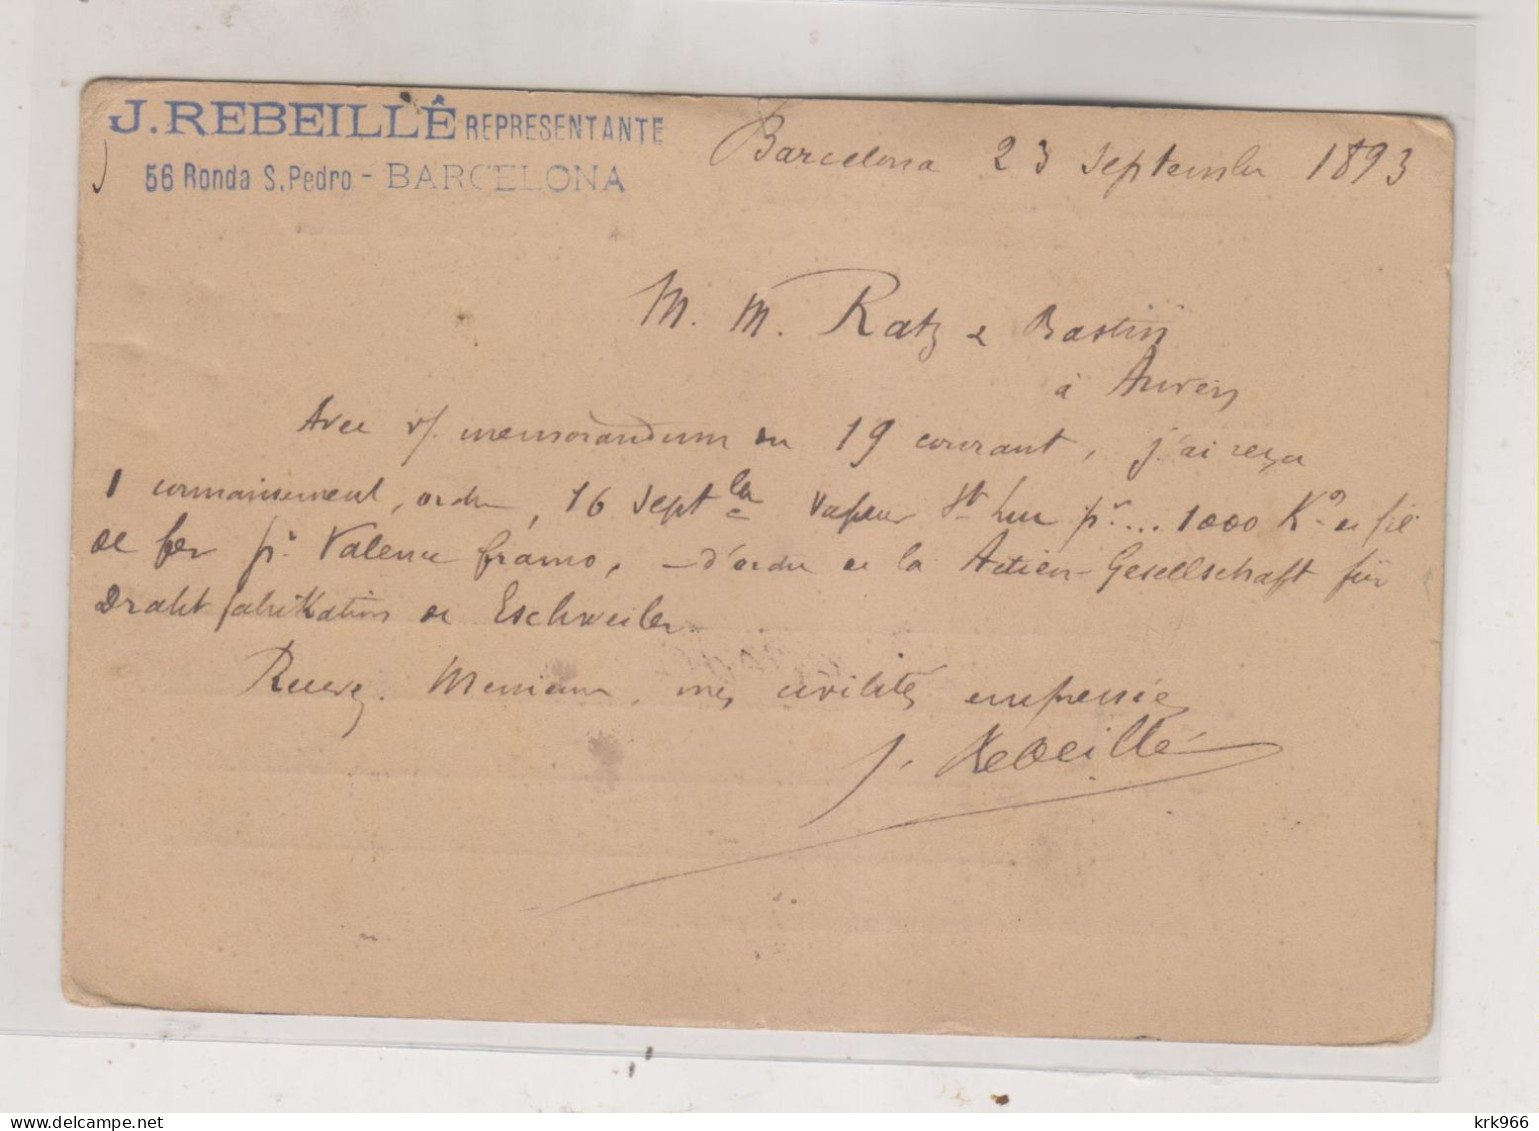 J. REBEILLÉ REPRESENTANTE
56 Ronda S. Pedro - BARCELONA
Barcelona 23 septembre 1893
M. M. Ratz & Bastin
à Anvers
Avec v/. memorandum du 19 courant, j'ai reçu
1 connaissement, ordre, 16 sept vapeur St Luc pr... 1000 Ko de fil
de fer pr Valence franco, - d'ordre de la Actien-Gesellschaft für
Draht fabrikation de Eschweiler
Recevez. Messieurs, mes civilités empressées
J. Rebeillé
krk966